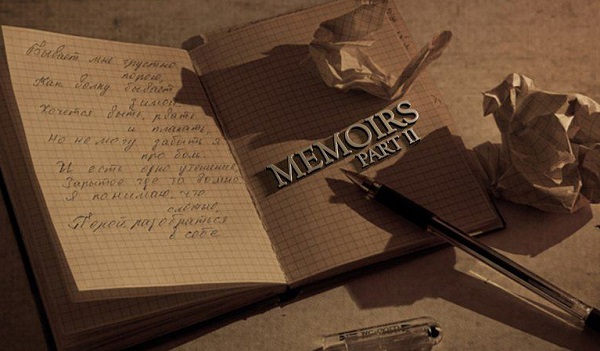 Бывает мне грустно
порою,
Как волку бывает
зимой
Хочется выть, рвать
и плакать,
Но не могу забыть я
про боль.
И есть одно утешение,
Зарытое где то
Я понимаю, что
Порой разобраться
в себе
MEMOIRS
PART II